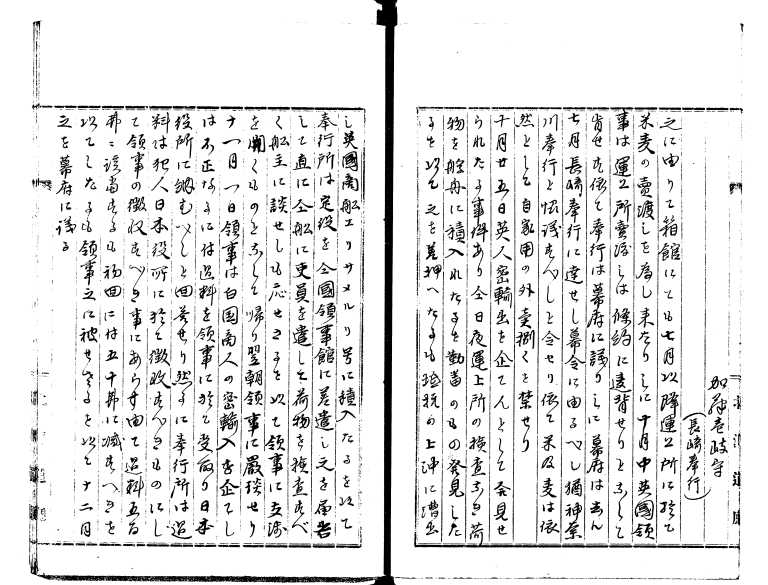 加藤壱岐守
(長崎奉行)
之に由りて箱館にても七月以降運上所に於て
米麦の賣渡しを為し来たりしに十月中英國領
事は運上所賣渡しは條約に違背せりとなして
肯せす依て奉行は幕府に議りしに幕府は去ん
七月長崎奉行に達せし幕令に由るへし猶神奈
川奉行と協議すへしと令せり依て米及麦は依
然として自家用の外賣捌くを禁せり
十月廿五日英人密輸出を企てんとして発見せ
られたる事件あり今日夜運上所の検査なき荷
物を艀舟に積入れたるを勤番のもの発見した
るを以て之を差押へたるも脱税の上沖に漕出
し英國商船エリサメルリ号に積入たるを以て
奉行所は定役を仝國領事館に差遣し之を届告
して直に仝船に吏員を遣して荷物を検査すへ
く船主に談せしも応せさるを以て領事に交渉
を開くものとなして帰り翌朝領事に嚴談せり
十一月一日領事は自国商人の密輸入を企てし
は不正なるには過料を領事に於て受取り日本
役所に納むへしと回答せり然るに奉行所は過
料は犯人日本役所に於て徴収すへきものにし
て領事の徴収すへき事にあらす由て過料五百
弗に該当するも初回には五十弗に減すへきを
以てしたるも領事之に被せさるを以て十二月
之を幕府に議る